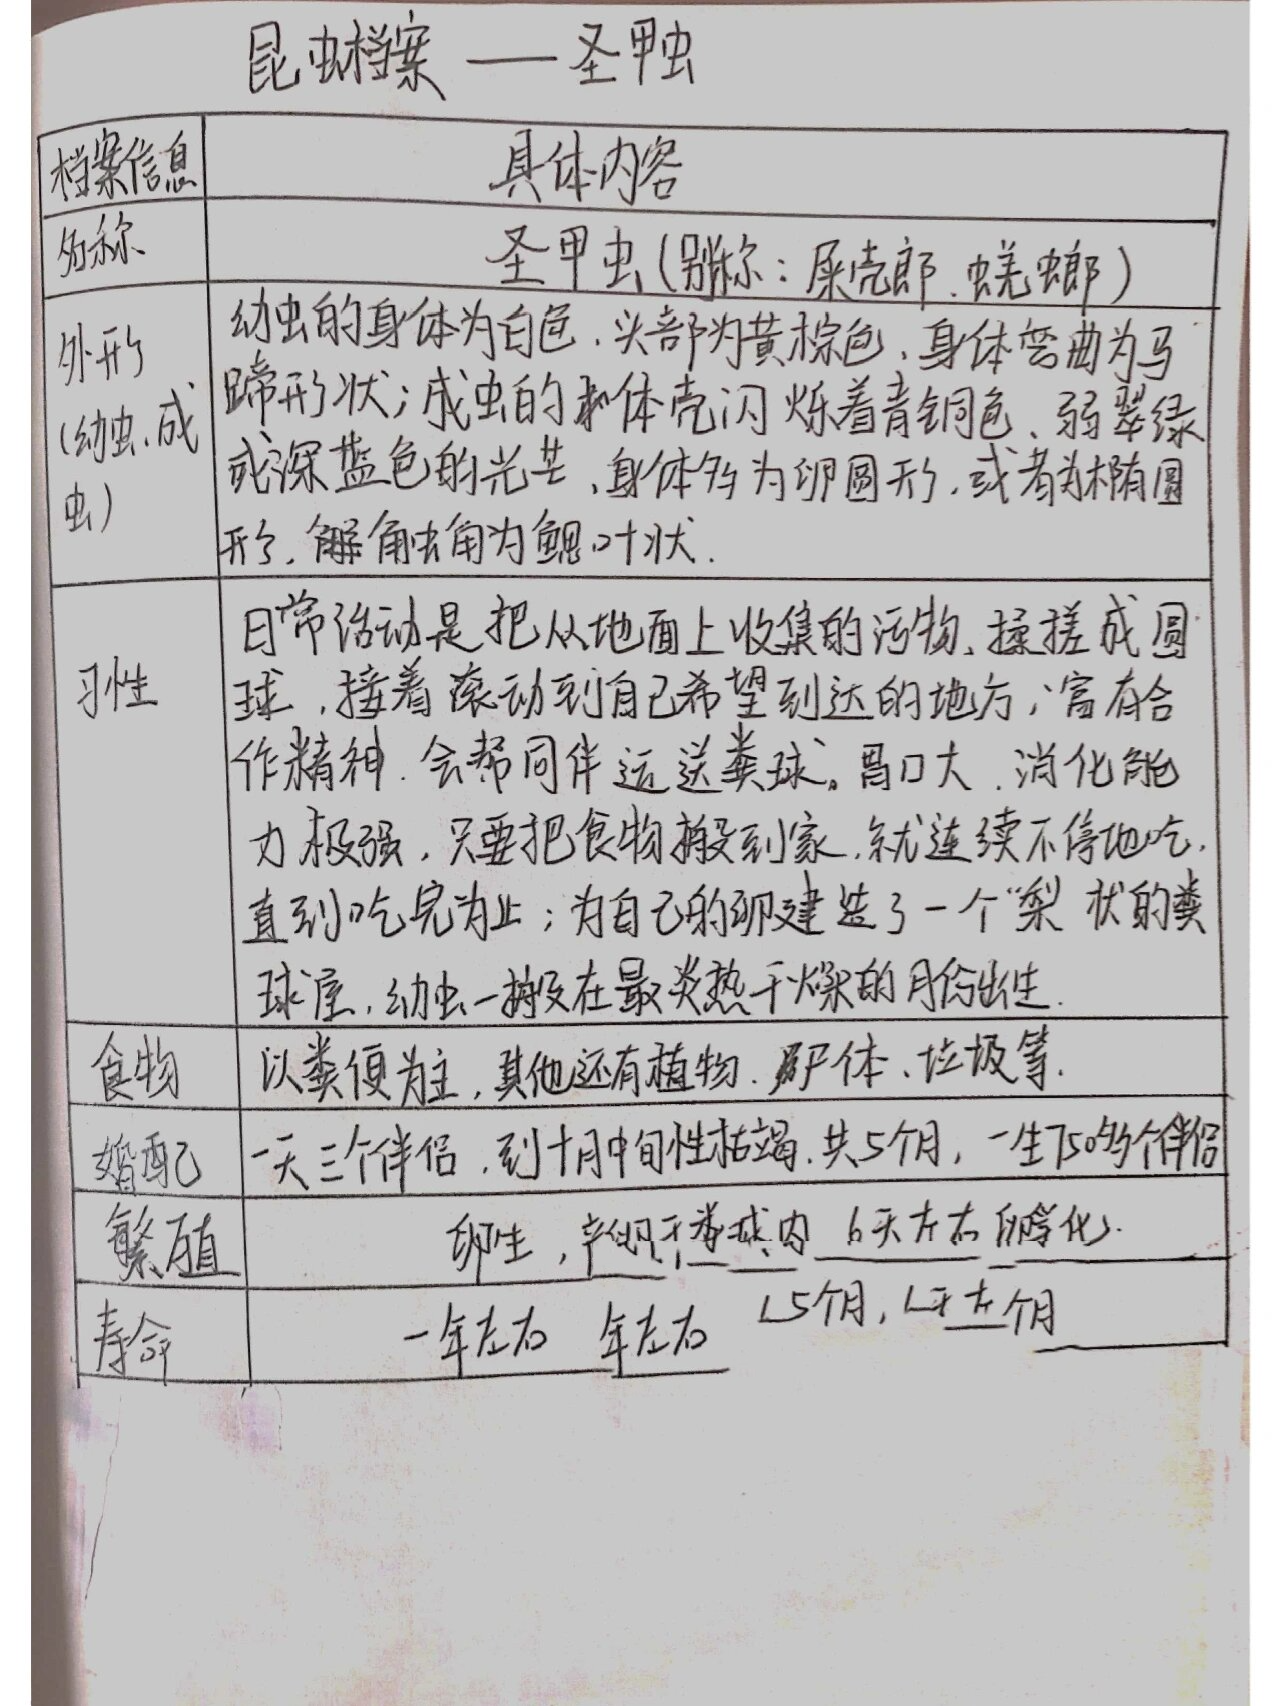 昆虫档案——圣甲虫
档案信息 具体内容
名称 圣甲虫(别称:屎壳郎、蜣螂)
外形
(幼虫、成
虫)
幼虫的身体为白色、头部为黄棕色、身体弯曲为马
蹄形状;成虫的体壳闪烁着青铜色、翠绿
或深蓝色的光芒、身体多为卵圆形、或者为椭圆
形、触角为鳃叶状.
习性
日常活动是把从地面上收集的污物、揉搓成圆
球,接着滚动到自己希望到达的地方;富有合
作精神.会帮同伴运送粪球。胃口大、消化能
力极强,只要把食物搬到家、就连续不停地吃、
直到吃完为止;为自己的卵建造了一个“梨状的粪
球屋,幼虫一般在最炎热干燥的月份出生.
食物 以粪便为主,其他还有植物、尸体、垃圾等.
婚配 一天三个伴侣、到十月中旬性枯竭.共5个月,一生750多个伴侣
繁殖 卵生,产卵于粪球内 6天左右孵化.
寿命 一年左右 年左右 5个月, 个月